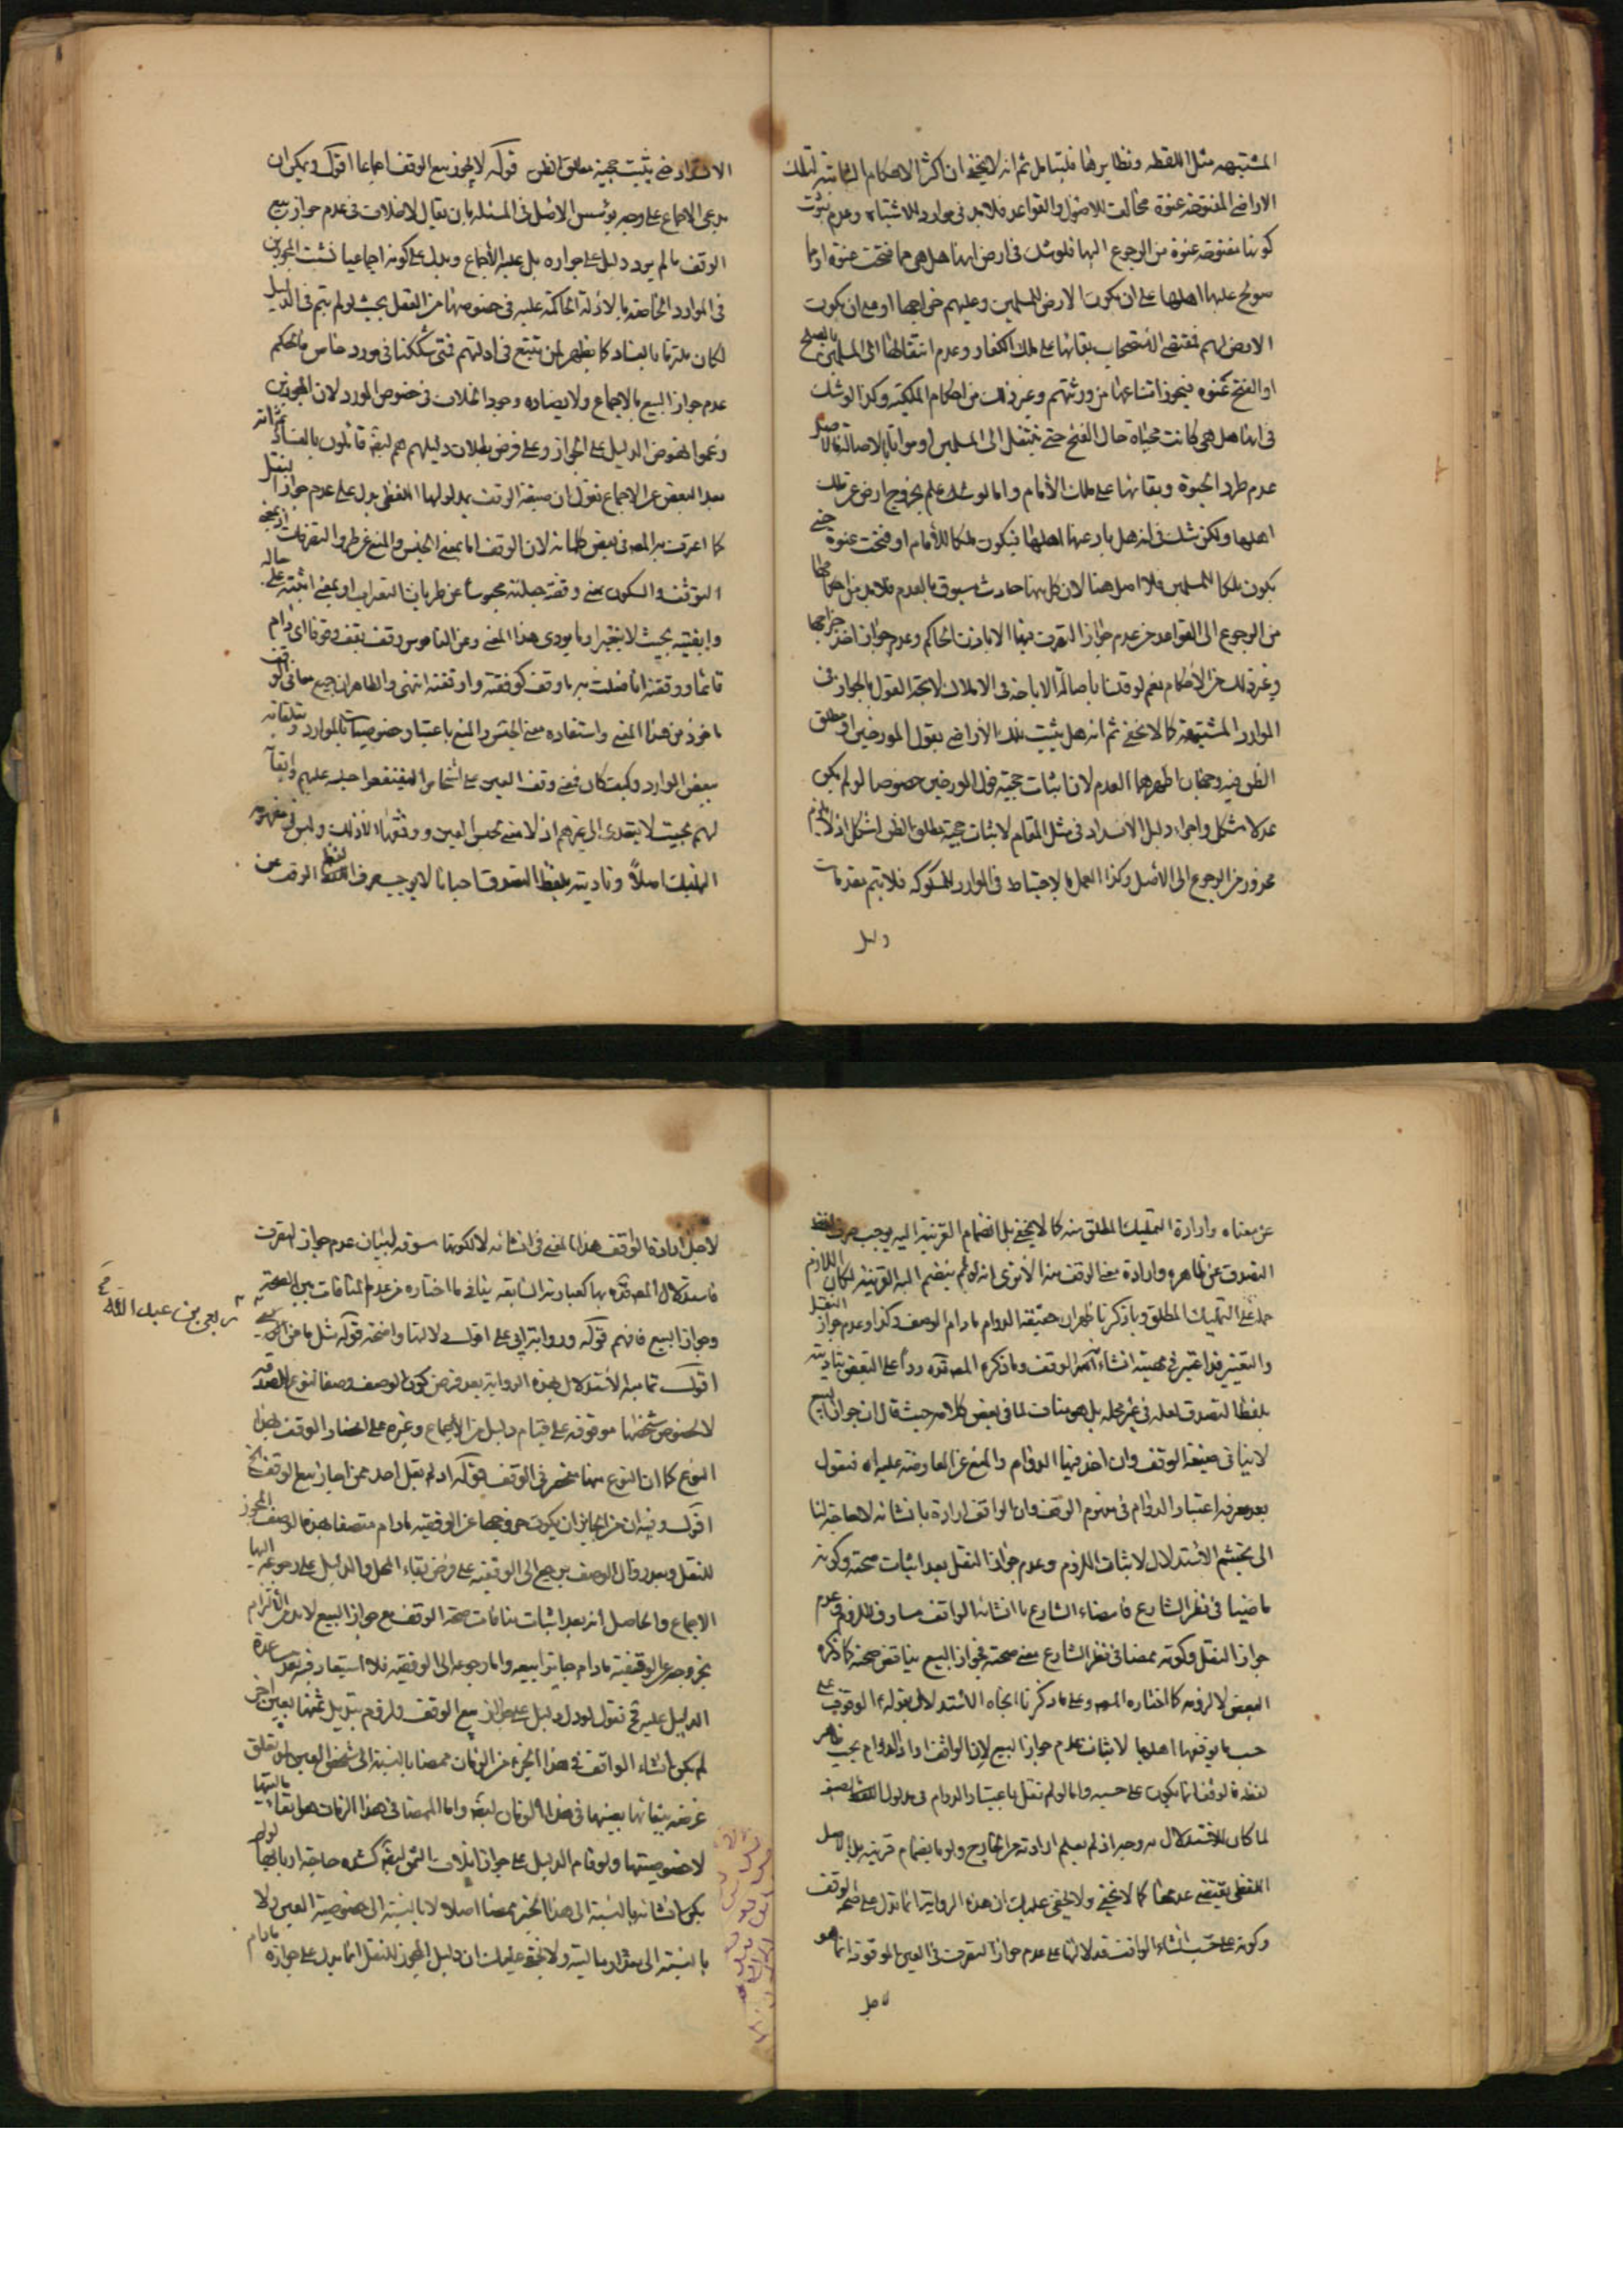 المشتبهه مثل اللقطه ونظايرها فليتامل ثم انه لا يخفى ان اكثر الاحكام الثابتة لتلك
الاراضى المفتوحة عنوة مخالف للاصول والقواعد فلا بد فى موارد الاشتباه وعدم ثبوت
كونها مفتوحة عنوة من الرجوع اليها فلو شك فى ارض انها هل هى مما فتحت عنوة او مما
صولح عليها اهلها على ان يكون الارض للمسلمين وعليهم خراجها او على ان يكون
الارض لهم فمقتضى الاستصحاب بقائها على ملك الكفار وعدم انتقالها الى المسلمين بالصلح
او الفتح عنوه فيجوز ابتياعها من ورثتهم وغير ذلك من احكام الملكية وكذا لو شك
فى انها هل هى كانت محياة حال الفتح حتى ينتقل الى المسلمين او مواتا بالاصالة فالاصل
عدم طرو الحيوة وبقائها على ملك الأمام واما لو شك علم بخروج ارض عن ملك
اهلها ولكن شك فى انه هل باد عنها اهلها فيكون ملكا للأمام او فتحت عنوة حتى
يكون ملكا للمسلمين فلا اصل هنا لان كل منها حادث مسبوق بالعدم فلا بد من
من الرجوع الى القواعد من عدم جواز التصرف فيها الا باذن الحاكم وعدم جواز اخذ خراجها
وغير ذلك من الأحكام نعم لو قلنا باصالة الاباحة فى الاملاك لاتجه القول بالجواز فى
الموارد المشتبهة كما لا يخفى ثم انه هل يثبت تلك الاراضى بقول المورخين او مطلق
الظن فيه وجهان اظهرهما العدم لان اثبات حجية قول المورخين خصوصا لو لم يكن
عدلا مشكل واجراء دليل الانسداد فى مثل المقام لاثبات حجية مطلق الظن اشكل اذ لا يلزم
محذور من الرجوع الى الأصل وكذا العمل بالاحتياط فى الموارد المشكوكه فلا يتم مقدمات
دليل
الانسداد حتى يثبت حجية مطلق الظن قوله لا يجوز بيع الوقف اجماعا اقول ويمكن ان
يدعى الاجماع على وجه يؤسس الاصل فى المسئلة بان يقال لا خلاف فى عدم جواز بيع
الوقف ما لم يرد دليل على جوازه بل عليه الأجماع ويدل على كونه اجماعيا تشبث المجوزين
فى الموارد الخاصة بالادلة الحاكمة عليه فى خصوصها من النقل بحيث لو لم يتم فى الدليل
لكان ملتزما بالفساد كما يظهر لمن تتبع فى ادلتهم فمتى شككنا فى مورد خاص فالحكم
عدم جواز البيع بالاجماع ولا يضاده وجود الخلاف فى خصوص المورد لان المجوزين
زعموا نهوض الدليل على الجواز وعلى فرض بطلان دليلهم هم ايضا قائلون بالفساد ثم انه
بعد البعض عن الاجماع نقول ان صيغة الوقف بمدلولها اللفظى يدل على عدم جواز النقل
كما اعترف به المص فى بعض كلماته لان الوقف اما بمعنى الحبس والمنع عن طرو التصرفات او بمعنى
التوقف والسكون بمعنى وقفته جعلته محبوسا عن طريان التغيرات او بمعنى اثبته على حاله
وابقيته بحيث لا يتغير او ما يودى هذا المعنى وعن القاموس وقف يقف وقوفا اى دام
قائما ووقفته انا فعلت به ما وقف كوقفته واوقفته انتهى والظاهر ان جميع معانى الوقف
ماخوذ من هذا المعنى واستفاده معنى الحبس والمنع باعتبار خصوصيات الموارد ومتعلقاته
بعض الموارد وكيف كان فمعنى وقف العين على اشخاص لينتفعوا حبسه عليهم وابقائه
لهم بحيث لا يتعدى الى غيرهم اذ لا معنى لحبس العين ووقفها الا ذلك وليس فى مفهومه
التمليك اصلاً وتاديته بلفظ التصدق احيانا لا يوجب صرف لفظ الوقف عن
عن معناه وارادة التمليك المطلق منه كما لا يخفى بل انضمام القرينة اليه يوجب صرف لفظ
التصدق عن ظاهره وارادة معنى الوقف منه الا ترى انه لو لم ينضم اليه القرينه لكان اللازم
حمله على التمليك المطلق وبما ذكرنا ظهر ان حقيقة الدوام مادام الوصف وكذا وعدم جواز النقل
والتغيير قد اعتبر فى مهيته انشاء الوقف وما ذكره المص قده ردا على البعض بتاديته
بلفظ التصدق لعله فى غير محله بل هو مناف لما فى بعض كلامه حيث قال ان جواز البيع
لا ينافى صيغة الوقف وان اخذ فيها الدوام والمنع عن المعاوضة عليه اه فنقول
بعد معرفه اعتبار الدوام فى مفهوم الوقف وان الواقف اراده بانشائه لا حاجة لنا
الى تجشم الاستدلال لاثبات اللزوم وعدم جواز النقل بعد اثبات صحته وكونه
ماضيا فى نظر الشارع فامضاء الشارع ما انشائه الواقف مساوق للزوم وعدم
جواز النقل وكونه ممضا فى نظر الشارع معنى صحته فجواز البيع يناقض صحته كما ذكره
البعض لا لزومه كما اختاره المص وعلى ما ذكرنا اتجاه الاستدلال بقوله ع الوقوف على
حسب ما يوقفها اهلها لاثبات عدم جواز البيع لان الواقف اراد الدوام بحسب ظاهر
لفظه فالوقف انما يكون على حسبه واما لو لم نقل باعتبار الدوام فى مدلول الصيغه
لما كان للاستدلال به وجه اذ لم يعلم ارادته من الخارج ولو بانضمام قرينه بل الاصل
اللفظى يقتضى عدمها كما لا يخفى ولا يخفى عليك ان هذه الرواية انما تدل على صحة الوقف
وكونه على حسب انشاء الواقف فدلالتها على عدم جواز التصرف فى العين الموقوفة انما هو
لاجل
لاجل ارادة الواقف هذا المعنى فى انشائه لا لكونها مسوقه لبيان عدم جواز التصرف
فاستدلال المص قده بها كعبارته السابقه ينافى ما اختاره من عدم المنافات بين الصحة
وجواز البيع فافهم قوله ورواية ابى على اقول دلالتها واضحة قوله مثل ما عن
اقول تمامية الاستدلال بهذه الرواية بعد فرض كون الوصف وصفا لنوع الصدقه
لا لخصوص شخصها موقوفه على قيام دليل من الاجماع وغيره على انحصار الوقف بهذا
النوع كما ان النوع منها منحصر فى الوقف قوله اذ لم يقل احد ممن اجاز بيع الوقف
اقول وفيه ان من الجايز ان يكون خروجها عن الوقفيه مادام متصفا بهذا الوصف المجوز
للنقل وبعد زوال الوصف يرجع الى الوقفيه على فرض بقاء المحل والدليل على رجوعه اليها
الاجماع والحاصل انه بعد اثبات منافات صحة الوقف مع جواز البيع لا بد من الالتزام
بخروجه عن الوقفية مادام جايزا بيعه واما رجوعه الى الوقفيه فلا استبعاد فيه بعد مساعدة
الدليل عليه نقول لو دل دليل على جواز بيع الوقف ولزوم تبديل ثمنها بعين اخرى
لم يكن انشاء الواقف فى هذا الجزء من الزمان ممضا بالنسبة الى شخص العين لو تعلق
غرضه ببقائها بعينها فى هذا الزمان ايضا واما الممضا فى هذا الزمان هو ابقاء ماليتها
لا خصوصيتها ولو قام الدليل على جواز اتلاف الثمن ايضا كشده حاجة اربابها لو لم
يكن انشائه بالنسبة الى هذا الجزء ممضا اصلا لا بالنسبة الى خصوصية العين ولا
بالنسبة الى مقدار ماليته ولا يخفى عليك ان دليل المجوز للنقل انما يدل على جوازه مادام